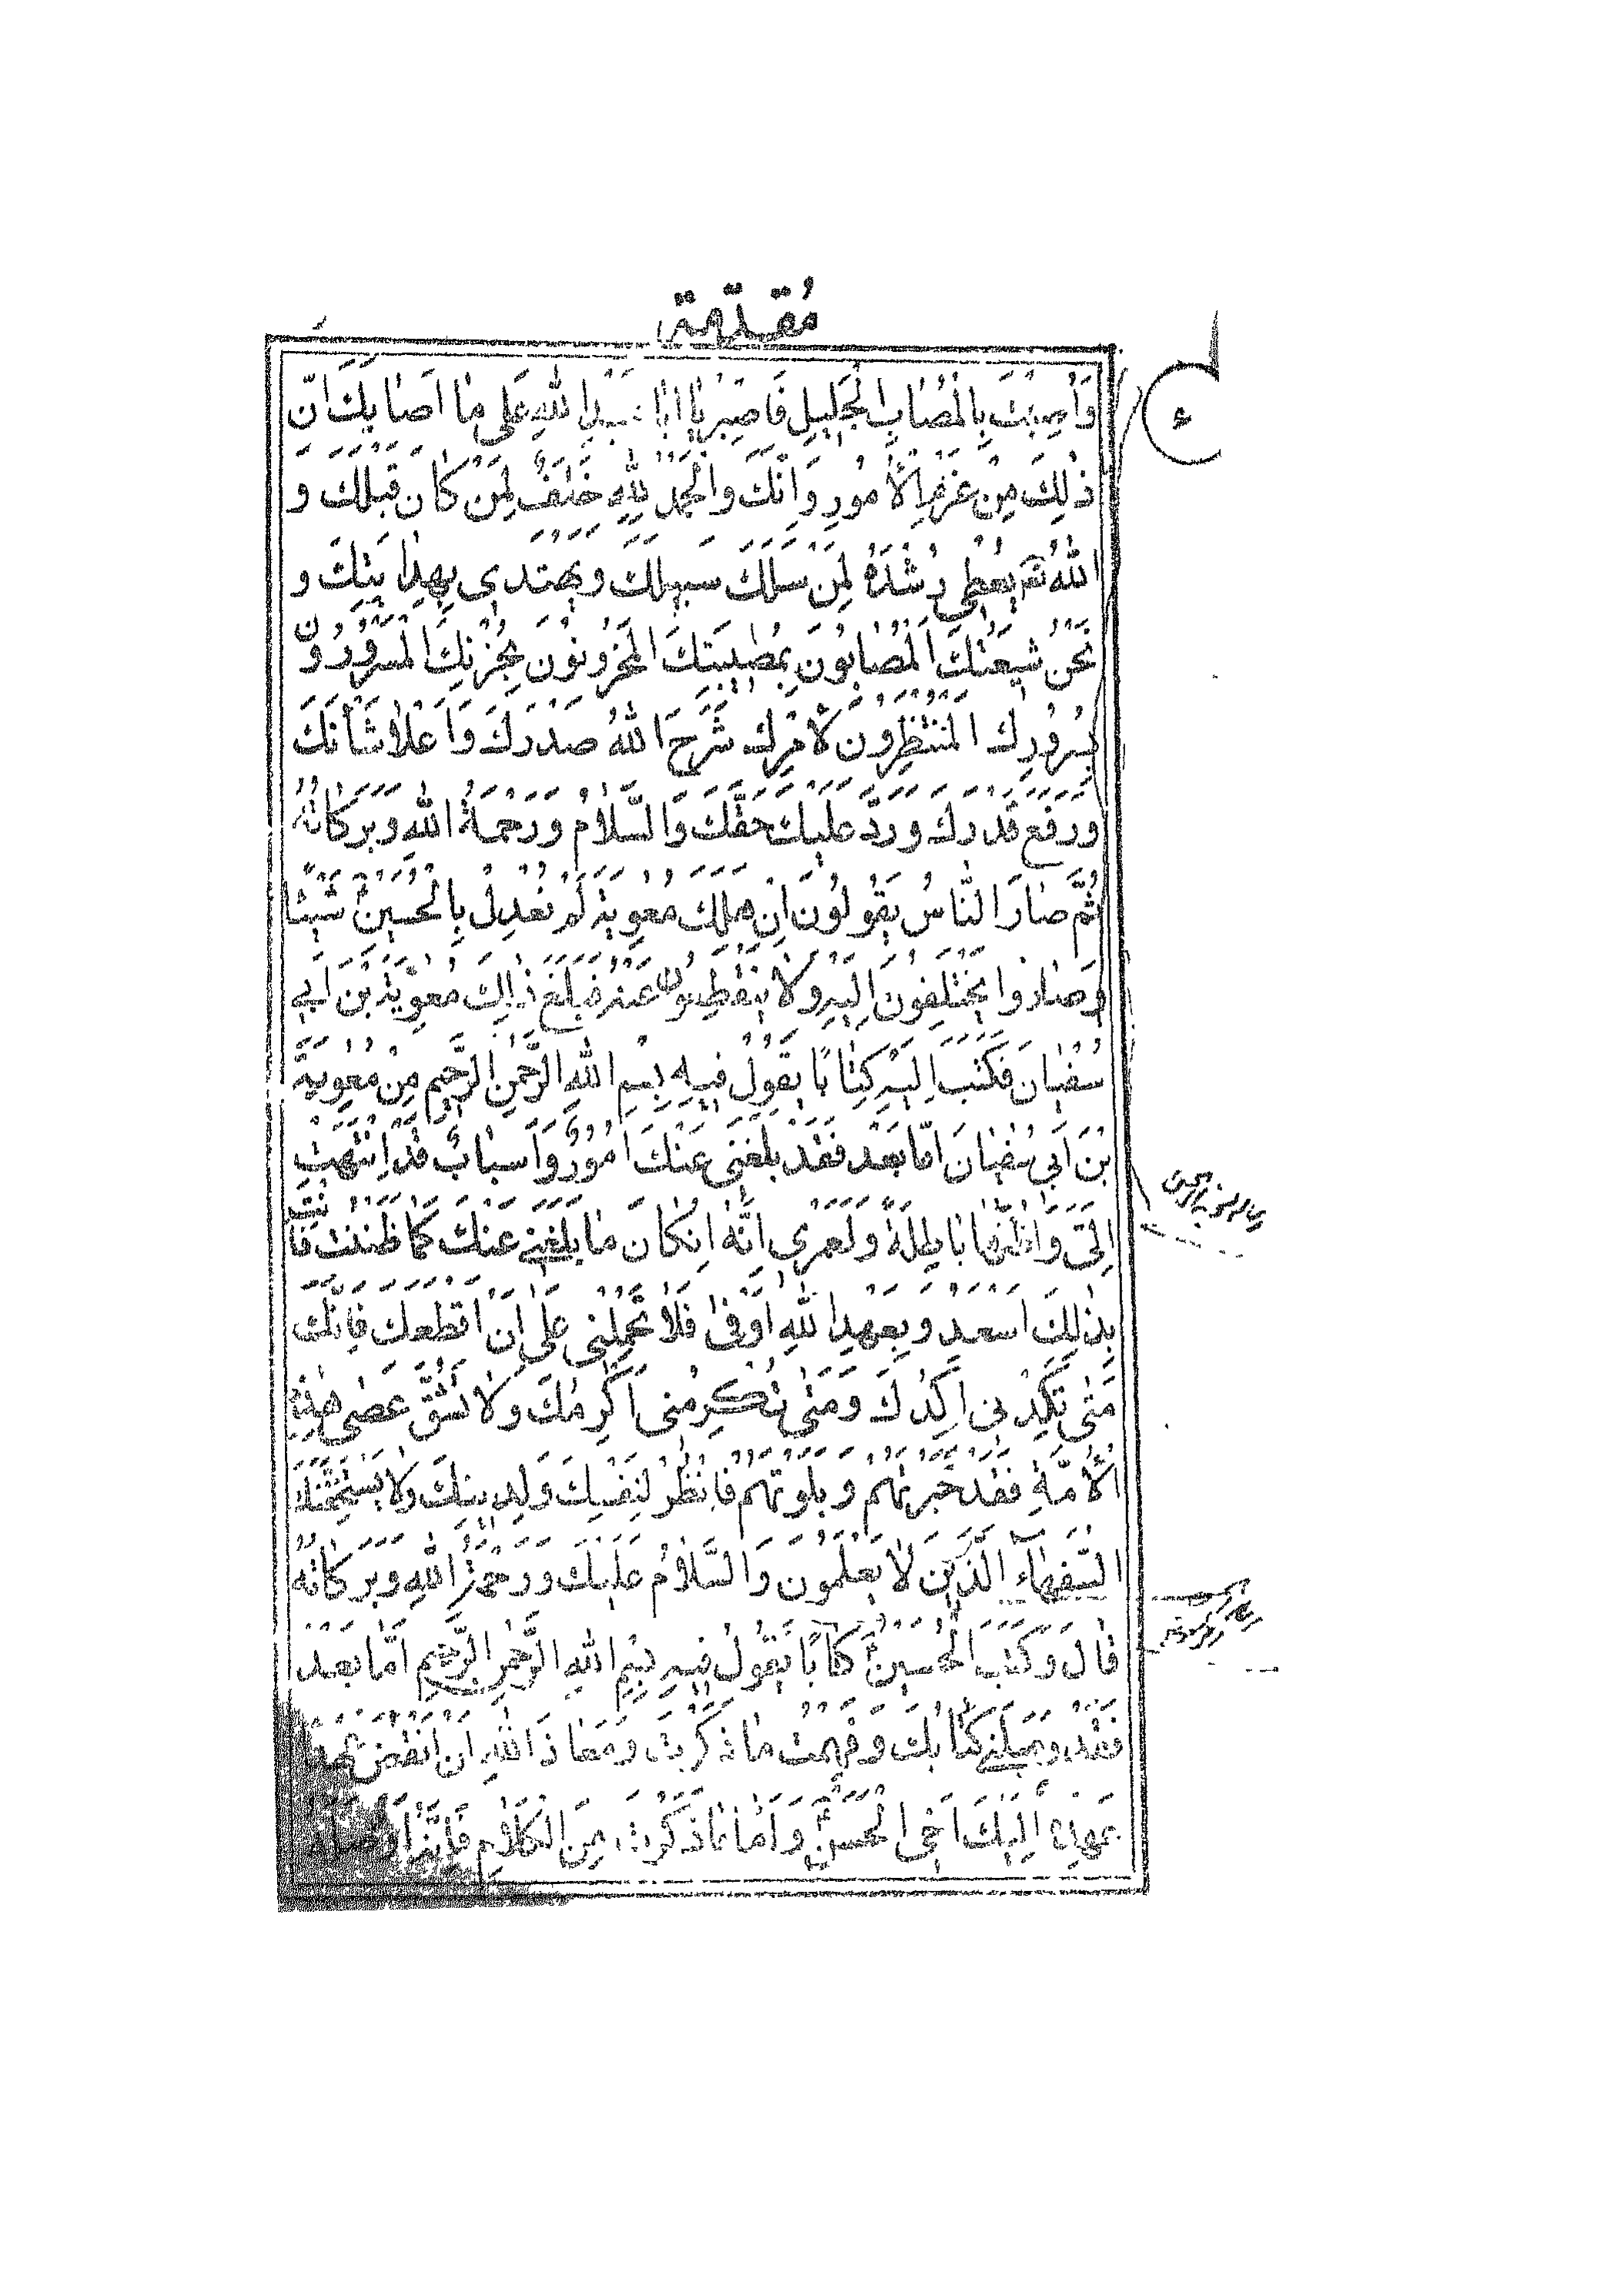 مُقدّمة
وَاُصِبْتَ بِالْمُصٰابِ الْجَلِيلِ فَاصْبِرْ يٰا اَبٰا عَبْدِ اللهِ عَلى مٰا اَصٰابَكَ اِنَّ
ذٰلِكَ مِنْ عَزْمِ الْاُمُورِ وَاِنَّكَ وَالْحَمْدُ لِلّٰهِ خَلَفٌ لِمَنْ كٰانَ قَبْلَكَ وَ
اللهُ يُعْطِى رُشْدَهُ لِمَنْ سَلَكَ سَبِيلَكَ وَيَهْتَدِى بِهِدٰايَتِكَ وَ
نَحْنُ شِيعَتُكَ الْمُصٰابُونَ بِمُصِيبَتِكَ الْمَحْزُونُونَ بِحُزْنِكَ الْمَسْرُورُونَ
بِسُرُورِكَ الْمُنْتَظِرُونَ لِاَمْرِكَ شَرَحَ اللهُ صَدْرَكَ وَاَعْلاٰ شَأْنَكَ
وَرَفَعَ قَدْرَكَ وَرَدَّ عَلَيْكَ حَقَّكَ وَالسَّلاٰمُ وَرَحْمَةُ اللهِ وَبَرَكٰاتُهُ
ثُمَّ صٰارَ النّٰاسُ يَقُولُونَ اِنْ هَلَكَ مُعٰوِيَةُ لَمْ نَعْدِلْ بِالْحُسَيْنِ شَيْئًا
وَصٰارُوا يَخْتَلِفُونَ اِلَيْهِ وَلاٰ يَنْقَطِعُونَ عَنْهُ فَبَلَغَ ذٰلِكَ مُعٰوِيَةَ بْنَ اَبِي
سُفْيٰانَ فَكَتَبَ اِلَيْهِ كِتٰابًا يَقُولُ فِيهِ بِسْمِ اللهِ الرَّحْمٰنِ الرَّحِيمِ مِنْ مُعٰوِيَةَ
بْنِ اَبِي سُفْيٰانَ اَمّٰا بَعْدُ فَقَدْ بَلَغَنِى عَنْكَ اُمُورٌ وَاَسْبٰابٌ قَدِ انْتَهَتْ
اِلَىَّ وَاَظُنُّهٰا بٰاطِلَةً وَلَعَمْرِى اِنَّهُ اِنْ كٰانَ مٰا بَلَغَنِى عَنْكَ كَمٰا ظَنَنْتُ فَاَنْتَ
بِذٰلِكَ اَسْعَدُ وَبِعَهْدِ اللهِ اَوْفٰى فَلاٰ تَحْمِلْنِى عَلٰى اَنْ اَقْطَعَكَ فَاِنَّكَ
مَتٰى تَكِدْنِى اَكِدْكَ وَمَتٰى تُكْرِمْنِى اُكْرِمْكَ وَلاٰ تَشُقَّ عَصٰى هٰذِهِ
الْاُمَّةِ فَقَدْ خَبَرْتَهُمْ وَبَلَوْتَهُمْ فَانْظُرْ لِنَفْسِكَ وَلِدِينِكَ وَلاٰ يَسْتَخِفَّنَّكَ
السُّفَهٰاءُ الَّذِينَ لاٰ يَعْلَمُونَ وَالسَّلاٰمُ عَلَيْكَ وَرَحْمَةُ اللهِ وَبَرَكٰاتُهُ
قٰالَ وَكَتَبَ الْحُسَيْنُ كِتٰابًا يَقُولُ فِيهِ بِسْمِ اللهِ الرَّحْمٰنِ الرَّحِيمِ اَمّٰا بَعْدُ
فَقَدْ وَصَلَنِى كِتٰابُكَ وَفَهِمْتُ مٰا ذَكَرْتَ وَمَعٰاذَ اللهِ اَنْ اَنْقُضَ
عَهِدَهُ اِلَيْكَ اَخِى الْحَسَنُ وَاَمّٰا مٰا ذَكَرْتَ مِنَ الْكَلاٰمِ فَاِنَّهُ